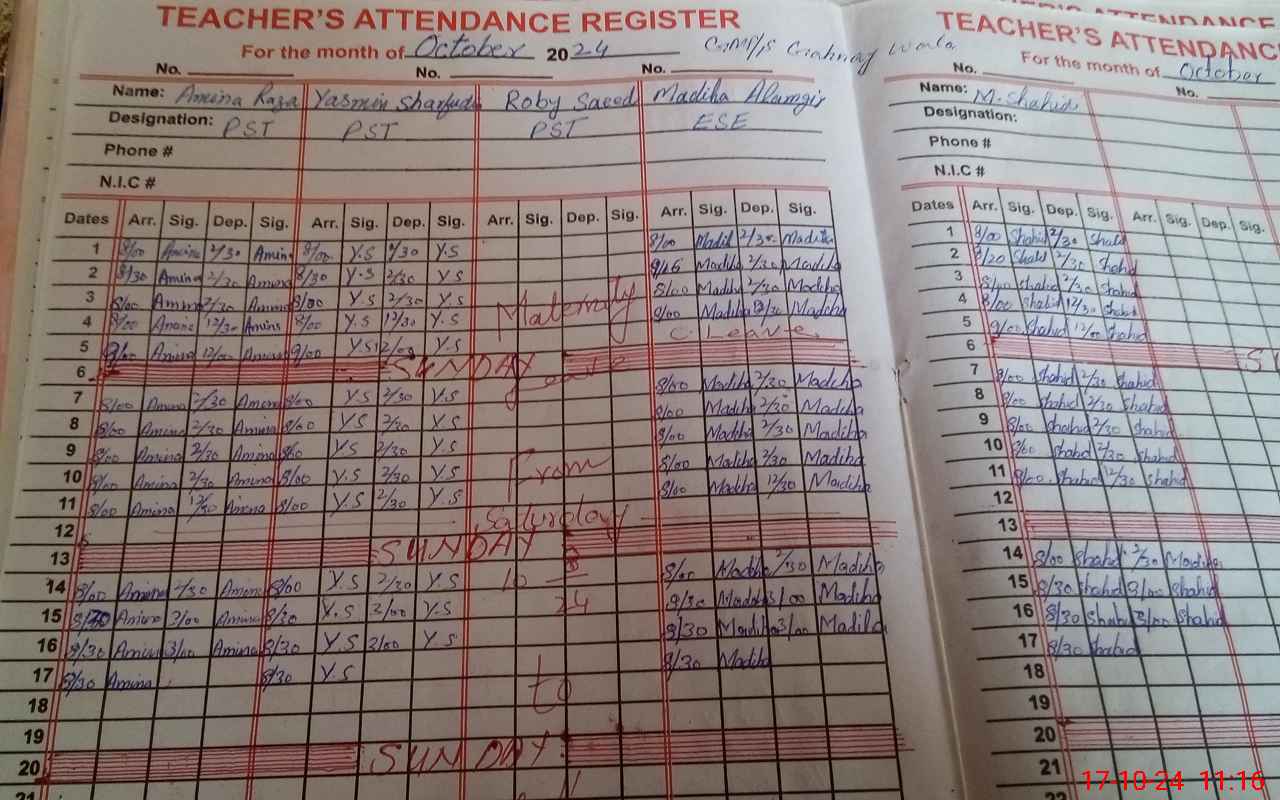 TEACHER'S ATTENDANCE REGISTER
For the month of October 2024
No. No. No.
Name: Amina Raza Yasmin Sharfud Roby Saeed Madiha Alamgir
Designation: PST PST PST ESE
Phone #
N.I.C #
Dates Arr. Sig. Dep. Sig. Arr. Sig. Dep. Sig. Arr. Sig. Dep. Sig. Arr. Sig. Dep. Sig.
1 8/00 Amina 2/30 Amina 8/00 Y.S 2/30 Y.S 8/00 Madih 2/30 Madiha
2 8/30 Amina 2/30 Amina 8/30 Y.S 2/30 Y.S Madiha 2/30 Madiha
3 8/00 Amina 2/30 Amina 8/00 Y.S 2/30 Y.S 8/00 Madiha 2/30 Madiha
4 8/00 Amina 12/30 Amina 8/00 Y.S 12/30 Y.S 8/00 Madiha 12/30 Madiha
Maternity
5 9/00 Amina 12/00 Amina 9/00 Y.S 12/00 Y.S C Leave
6 SUNDAY Leave
7 8/00 Amina 2/30 Amina 8/00 Y.S 2/30 Y.S 8/00 Madiha 2/30 Madiha
8 8/00 Amina 2/30 Amina 8/00 Y.S 2/30 Y.S 8/00 Madiha 2/30 Madiha
9 8/00 Amina 2/30 Amina 8/00 Y.S 2/30 Y.S 8/00 Madiha 2/30 Madiha
10 8/00 Amina 2/30 Amina 8/00 Y.S 2/30 Y.S From 8/00 Madiha 2/30 Madiha
11 8/00 Amina 12/30 Amina 8/00 Y.S 2/30 Y.S 8/00 Madiha 12/30 Madiha
12 Saturday
13 SUNDAY 8
14 8/00 Amina 2/30 Amina 8/00 Y.S 2/30 Y.S 10 8/00 Madiha 2/30 Madiha
15 8/30 Amina 3/00 Amina 8/30 Y.S 3/00 Y.S 24 8/30 Madiha 3/00 Madiha
16 8/30 Amina 3/00 Amina 8/30 Y.S 3/00 Y.S 8/30 Madiha 3/00 Madiha
17 8/30 Amina 8/30 Y.S 8/30 Madiha
18 to
19
20 SUNDAY
21
TEACHER'S ATTENDANC
For the month of October
No. No.
Name: M. Shahid
Designation:
Phone #
N.I.C #
Dates Arr. Sig. Dep. Sig. Arr. Sig. Dep. Sig.
1 8/00 Shahid 2/30 Shahid
2 8/20 Shahid 2/30 Shahid
3 8/40 shahid 2/30 Shahid
4 8/00 shahid 12/30 Shahid
5 9/00 Shahid 12/00 Shahid
6 S
7 8/00 shahid 2/30 shahid
8 8/00 shahid 2/30 shahid
9 8/00 shahid 2/30 shahid
10 8/00 shahid 2/30 shahid
11 8/00 shahid 12/30 shahid
12
13
14 8/00 Shahid 2/30 Madiha
15 8/30 shahid 3/00 shahid
16 8/30 Shahid 3/00 Shahid
17 8/30 shahid
18
19
20
21
22
17-10-24 11:16